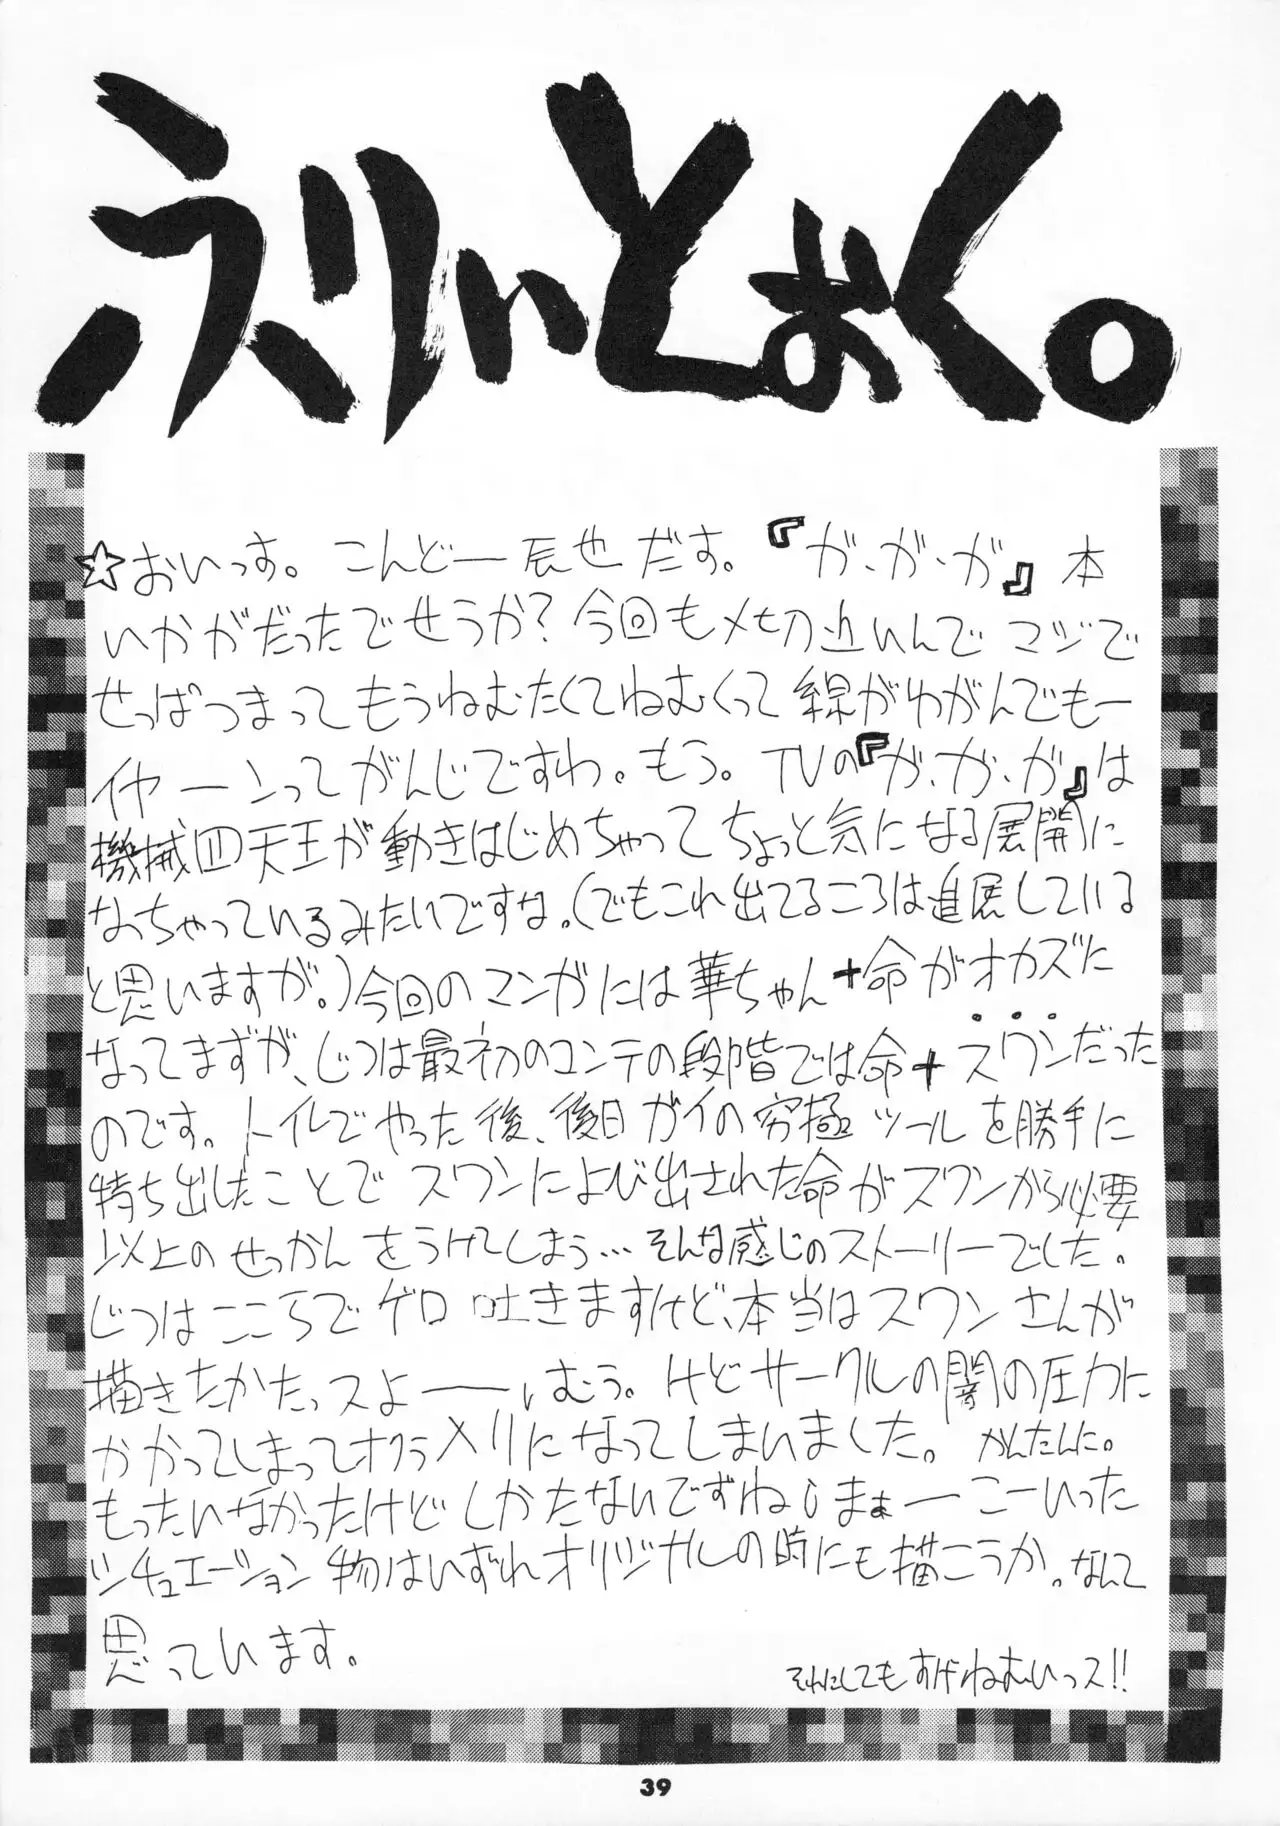 えりぃとぉく。
☆おいっす。こんどー辰也だす。『ガ・ガ・ガ』本
いかがだったでせうか?今回も〆切近いんでマジで
せっぱつまってもうねむたくてねむくって線がわがんでもー
イヤーンってがんじですわ。もう。TVの『ガ・ガ・ガ』は
機械四天王が動きはじめちゃってちょっと気になる展開に
なっちゃっているみたいですな。(でもこれ出てるころは進展している
と思いますが。)今回のマンガには華ちゃん+命がオカズに
なってますが、じつは最初のコンテの段階では命+スワンだった
のです。トイレでやった後、後日ガイの究極ツールを勝手に
持ち出したことでスワンによび出された命がスワンから必要
以上のせっかんをうけてしまう…そんな感じのストーリーでした。
じつはここらでゲロ吐きますけど、本当はスワンさんが
描きたかたっスよ――いむう。けどサークルの闇の圧力に
かかってしまってオクラ入りになってしまいました。かんたんに。
もったいなかったけどしかたないですねしまぁーこーいった
シチュエーション物はいずれオリジナルの時にも描こうか。なんて
思っています。
それにしてもすげーねむいっス!!
39